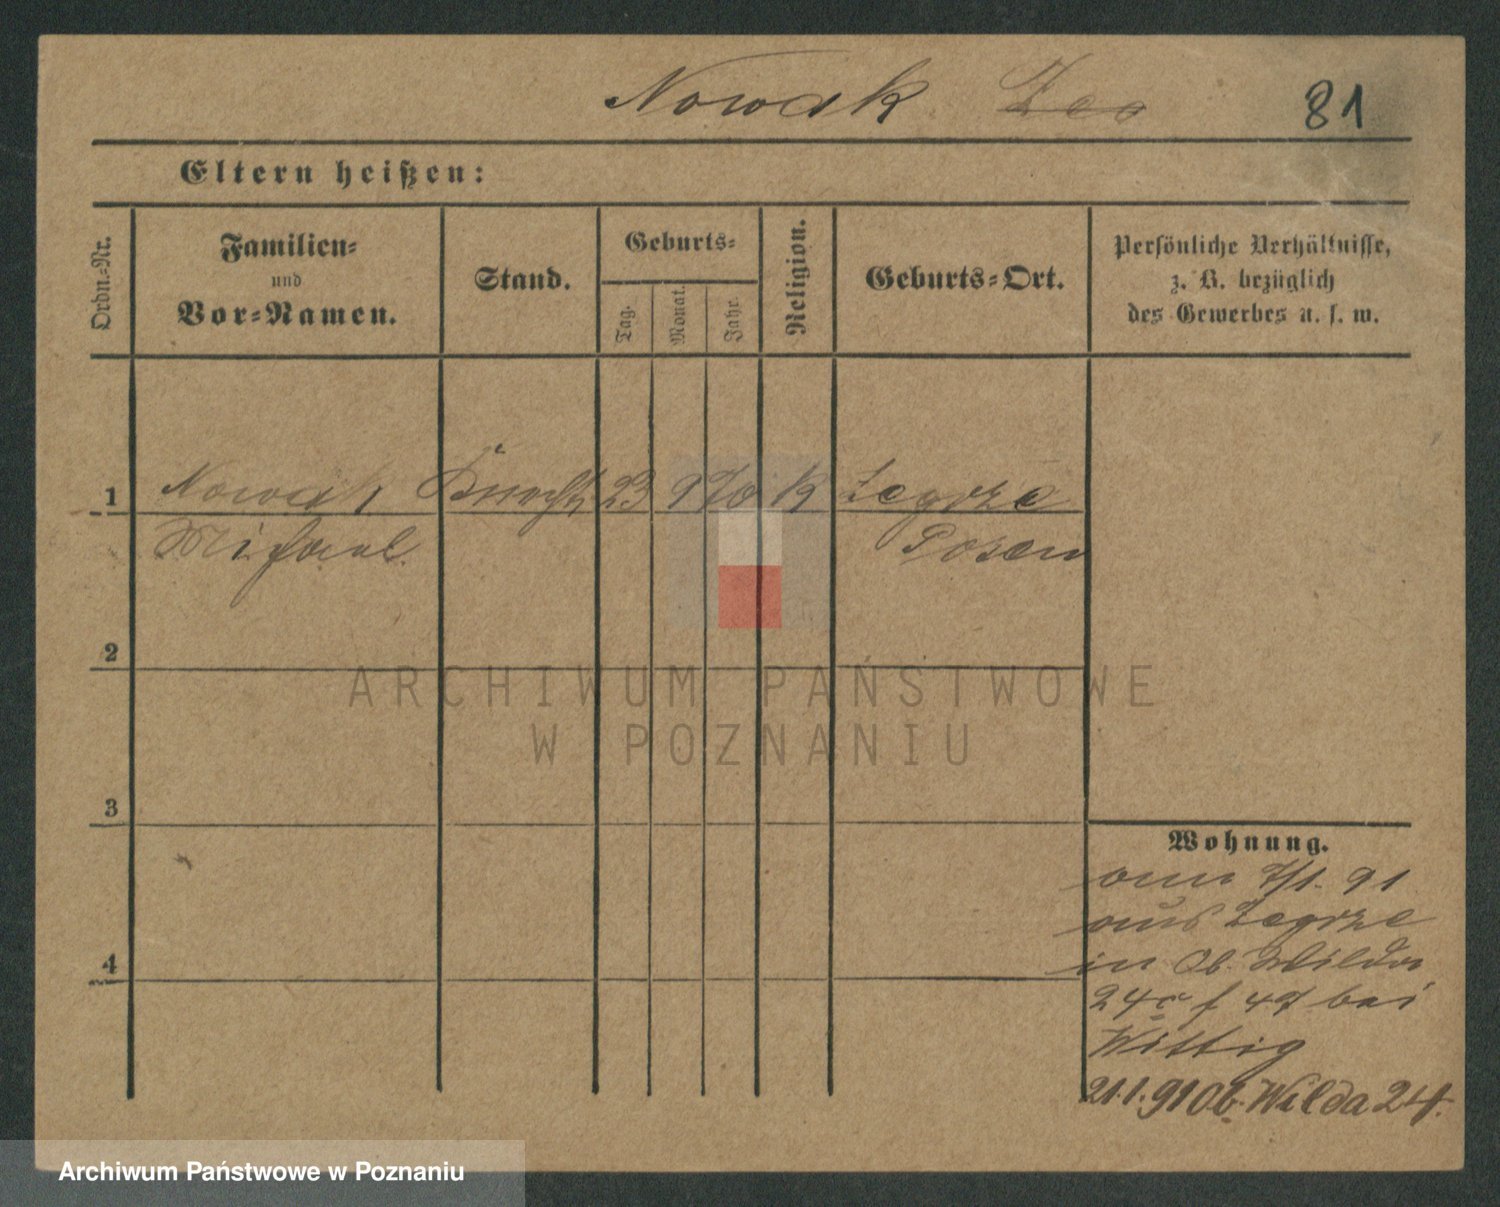 Nowak
81
Eltern heißen:
Ordn.-Nr.
Familien-
und
Vor-Namen.
Stand.
Geburts-
Tag.
Monat.
Jahr.
Religion.
Geburts-Ort.
Persönliche Verhältnisse,
z. B. bezüglich
des Gewerbes u. s. w.
1 Nowak Knecht 23 9 70 K Zegrze
Michael Posen
2
3
4
Wohnung.
7/1. 91
aus Zegrze
in Ob. Wilda
bei
Wittig
21.1.91 Ob. Wilda 24.
ARCHIWUM PAŃSTWOWE
W POZNANIU
Archiwum Państwowe w Poznaniu